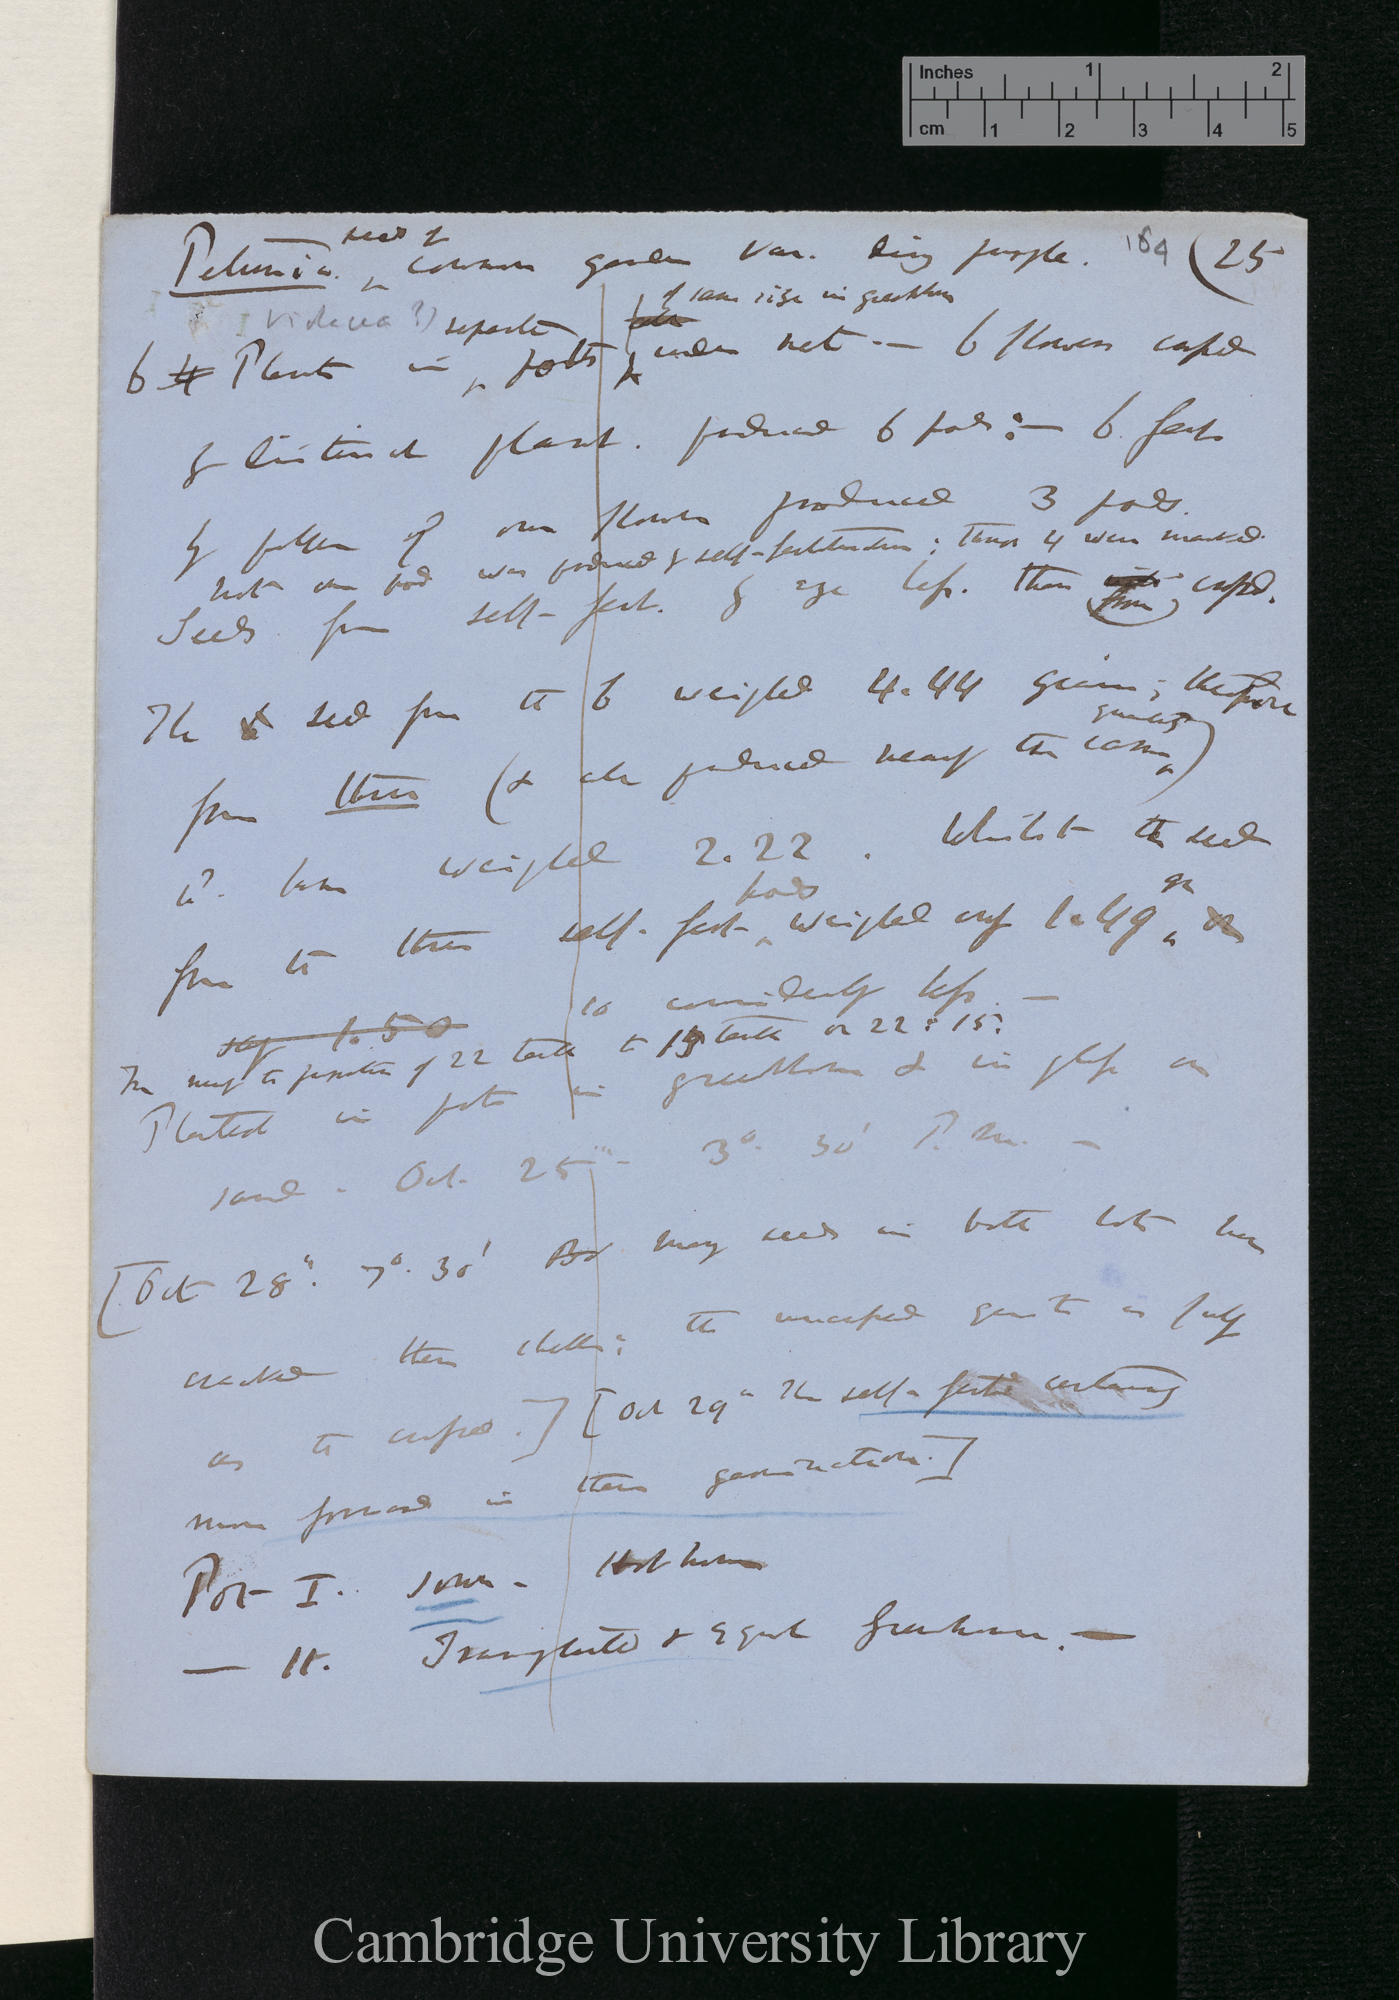 Inches 1 2
cm 1 2 3 4 5
Petunia. seed of common garden var. dingy purple. 169 (25
violacea?)
6 Plants in separate pots of same size in greenhouse under net.— 6 flowers crossed
by distinct plant. produced 6 pods:— 6. fert
by pollen of own flower produced 3 pods.
not one pod was produced by self-fertilisation; these 4 were marked.
Seeds from self-fert. by eye less. than from crossed.
The seed from the 6 weighed 4.44 grains; therefore
from three (& also produced nearly the same quantity)
wd. have weighed 2.22. Whilst the seed
from the three self-fert pods weighed only 1.49 gr
say 1.50 so considerably less.—
In the proportion of 22 tenth to 15 tenth or 22:15:
Planted in pots in greenhouse & in glass on
sand. Oct. 25th 3°. 30' P.m.—
[Oct 28th. 7°. 30' many seeds in both lots have
cracked their shells; the uncrossed quite as fully
as the crossed.] [Oct 29th The self-fertd certainly
more forward in their germination.]
Pot I. sown. Hot house
— II. Transplanted & equal Greenhouse.—
Cambridge University Library